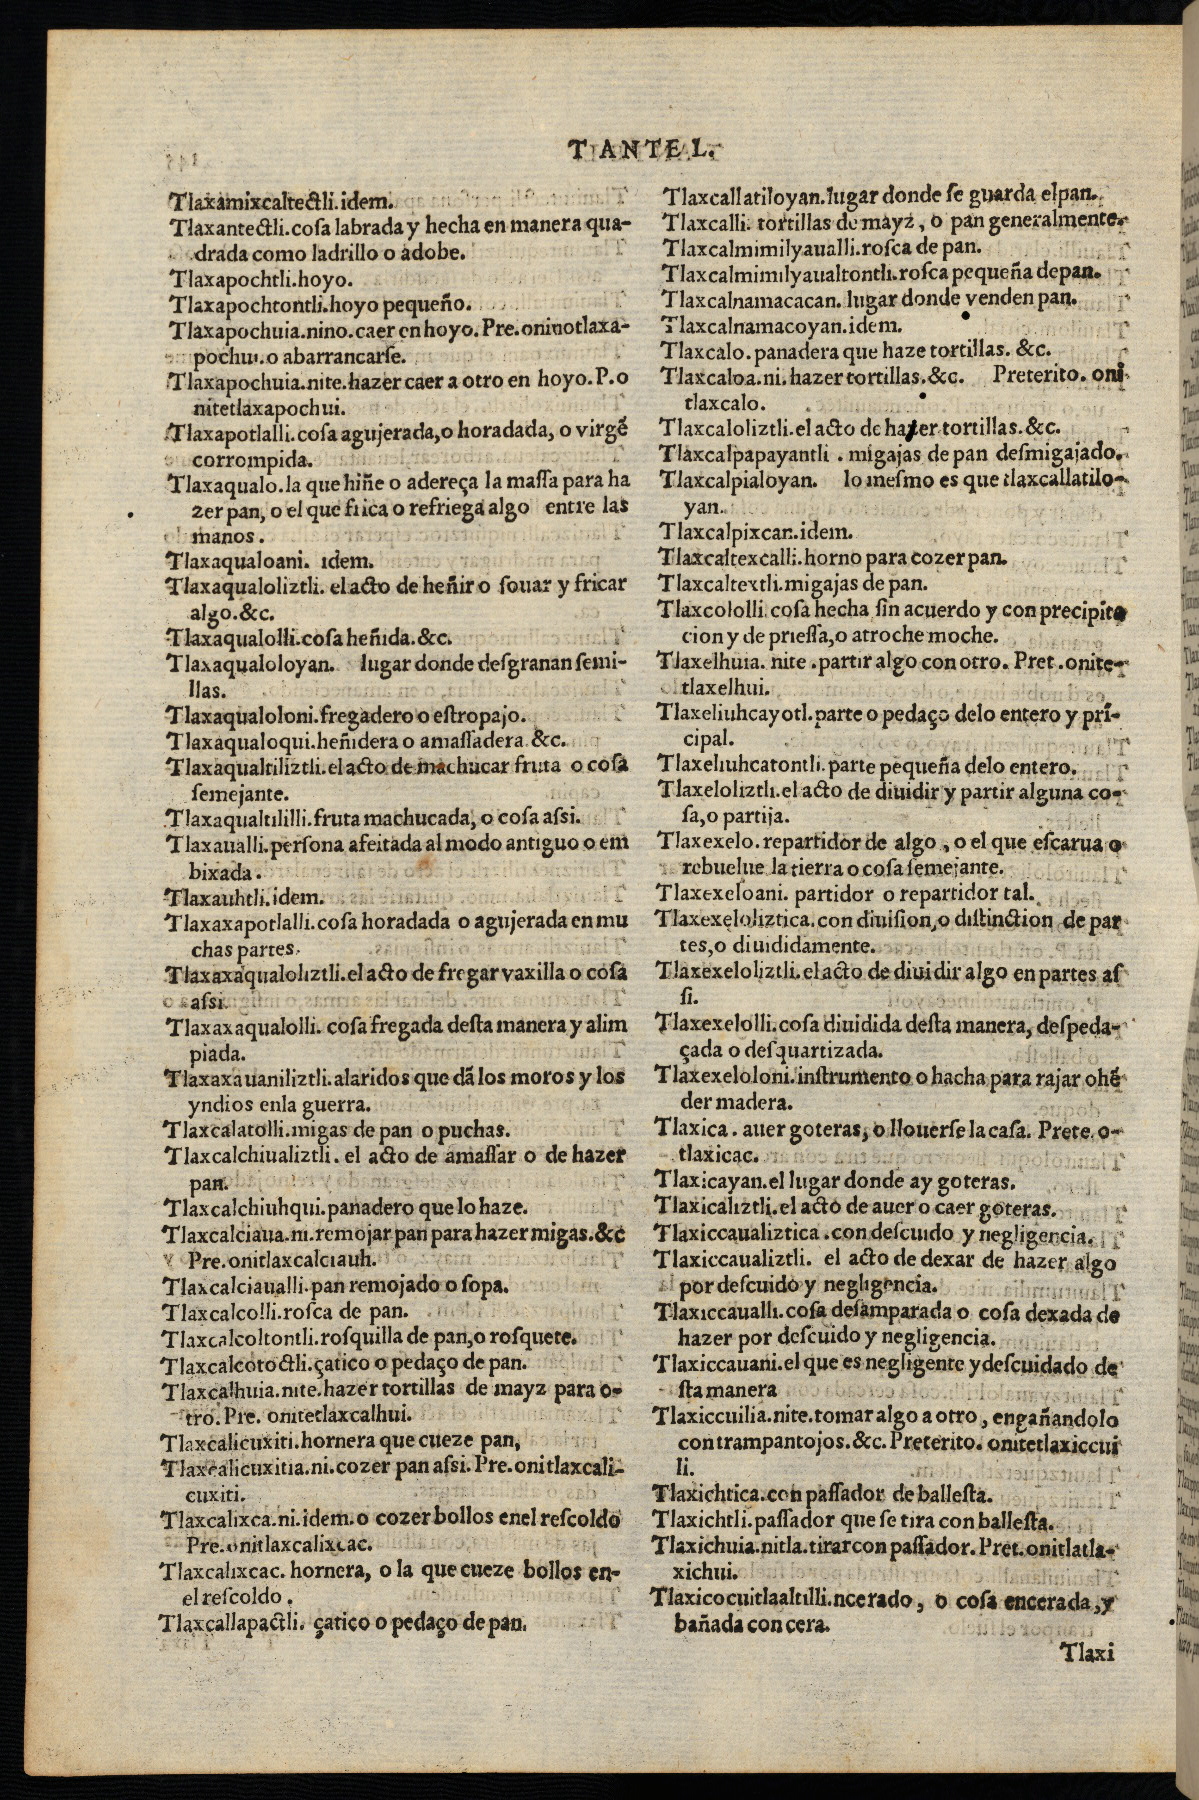 T ANTE L.
Tlaxamixcaltectli.idem.
Tlaxantectli.coſa labrada y hecha en manera qua-
drada como ladrillo o adobe.
Tlaxapochtli.hoyo.
Tlaxapochtontli.hoyo pequeño.
Tlaxapochuia.nino.caer en hoyo.Pre.oninotlaxa-
pochui.o abarrancarſe.
Tlaxapochuia.nite.hazer caer a otro en hoyo.P.o
nitetlaxapochui.
Tlaxapotlalli.coſa agujerada,o horadada, o virgẽ
corrompida.
Tlaxaqualo.la que hiñe o adereça la maſſa para ha
zer pan, o el que frica o refriega algo entre las
manos.
Tlaxaqualoani. idem.
Tlaxaqualoliztli. el acto de heñir o ſouar y fricar
algo.&c.
Tlaxaqualolli.coſa heñida.&c.
Tlaxaqualoloyan. lugar donde deſgranan ſemi-
llas.
Tlaxaqualoloni.fregadero o eſtropajo.
Tlaxaqualoqui.heñidera o amaſſadera.&c.
Tlaxaqualtiliztli.el acto de machucar fruta o coſa
ſemejante.
Tlaxaqualtililli.fruta machucada, o coſa aſsi.
Tlaxaualli.perſona afeitada al modo antiguo o em
bixada.
Tlaxauhtli.idem.
Tlaxaxapotlalli.coſa horadada o agujerada en mu
chas partes.
Tlaxaxaqualoliztli.el acto de fregar vaxilla o coſa
aſsi.
Tlaxaxaqualolli. coſa fregada deſta manera y alim
piada.
Tlaxaxauaniliztli.alaridos que dã los moros y los
yndios enla guerra.
Tlaxcalatolli.migas de pan o puchas.
Tlaxcalchiualiztli. el acto de amaſſar o de hazer
pan.
Tlaxcalchiuhqui.panadero que lo haze.
Tlaxcalciaua.ni.remojar pan para hazer migas.&c
Pre.onitlaxcalciauh.
Tlaxcalciaualli.pan remojado o ſopa.
Tlaxcalcolli.roſca de pan.
Tlaxcalcoltontli.roſquilla de pan,o roſquete.
Tlaxcalcotoctli.çatico o pedaço de pan.
Tlaxcalhuia.nite.hazer tortillas de mayz para o-
tro.Pre. onitetlaxcalhui.
Tlaxcalicuxiti.hornera que cueze pan,
Tlaxcalicuxitia.ni.cozer pan aſsi. Pre.onitlaxcali-
cuxiti.
Tlaxcalixca.ni.idem.o cozer bollos enel reſcoldo
Pre.onitlaxcalixcac.
Tlaxcalixcac. hornera, o la que cueze bollos en-
el reſcoldo.
Tlaxcallapactli. çatico o pedaço de pan.
Tlaxcallatiloyan.lugar donde ſe guarda el pan.
Tlaxcalli. tortillas de mayz, o pan generalmente.
Tlaxcalmimilyaualli.roſca de pan.
Tlaxcalmimilyaualtontli.roſca pequeña de pan.
Tlaxcalnamacacan. lugar donde venden pan.
Tlaxcalnamacoyan.idem.
Tlaxcalo. panadera que haze tortillas. &c.
Tlaxcaloa.ni. hazer tortillas.&c. Preterito. oni
tlaxcalo.
Tlaxcaloliztli.el acto de hazer tortillas.&c.
Tlaxcalpapayantli . migajas de pan deſmigajado.
Tlaxcalpialoyan. lo meſmo es que tlaxcallatilo-
yan.
Tlaxcalpixcan.idem.
Tlaxcaltexcalli.horno para cozer pan.
Tlaxcaltextli.migajas de pan.
Tlaxcololli.coſa hecha ſin acuerdo y con precipita
cion y de prieſſa,o atroche moche.
Tlaxelhuia. nite .partir algo con otro. Pret.onite-
tlaxelhui.
Tlaxeliuhcayotl.parte o pedaço delo entero y prĩ-
cipal.
Tlaxeliuhcatontli.parte pequeña delo entero.
Tlaxeloliztli.el acto de diuidir y partir alguna co-
ſa,o partija.
Tlaxexelo. repartidor de algo , o el que eſcarua o
rebuelue la tierra o coſa ſemejante.
Tlaxexeloani. partidor o repartidor tal.
Tlaxexeloliztica.con diuiſion,o diſtinction de par
tes,o diuididamente.
Tlaxexeloliztli.el acto de diuidir algo en partes aſ
ſi.
Tlaxexelolli.coſa diuidida deſta manera, deſpeda-
çada o deſquartizada.
Tlaxexeloloni.inſtrumento o hacha para rajar o hẽ
der madera.
Tlaxica. auer goteras, o llouerſe la caſa. Prete. o-
tlaxicac.
Tlaxicayan.el lugar donde ay goteras.
Tlaxicaliztli.el acto de auer o caer goteras.
Tlaxiccaualiztica . con deſcuido y negligencia.
Tlaxiccaualiztli. el acto de dexar de hazer algo
por deſcuido y negligencia.
Tlaxiccaualli.coſa deſamparada o coſa dexada de
hazer por deſcuido y negligencia.
Tlaxiccauani.el que es negligente y deſcuidado de
ſta manera
Tlaxiccuilia.nite.tomar algo a otro , engañandolo
con trampantojos.&c.Preterito. onitetlaxiccui
li.
Tlaxichtica.con paſſador de balleſta.
Tlaxichtli.paſſador que ſe tira con balleſta.
Tlaxichuia.nitla.tirar con paſſador. Pret.onitlatla-
xichui.
Tlaxicocuitlaaltilli.ncerado, o coſa encerada,y
bañada con cera.
Tlaxi